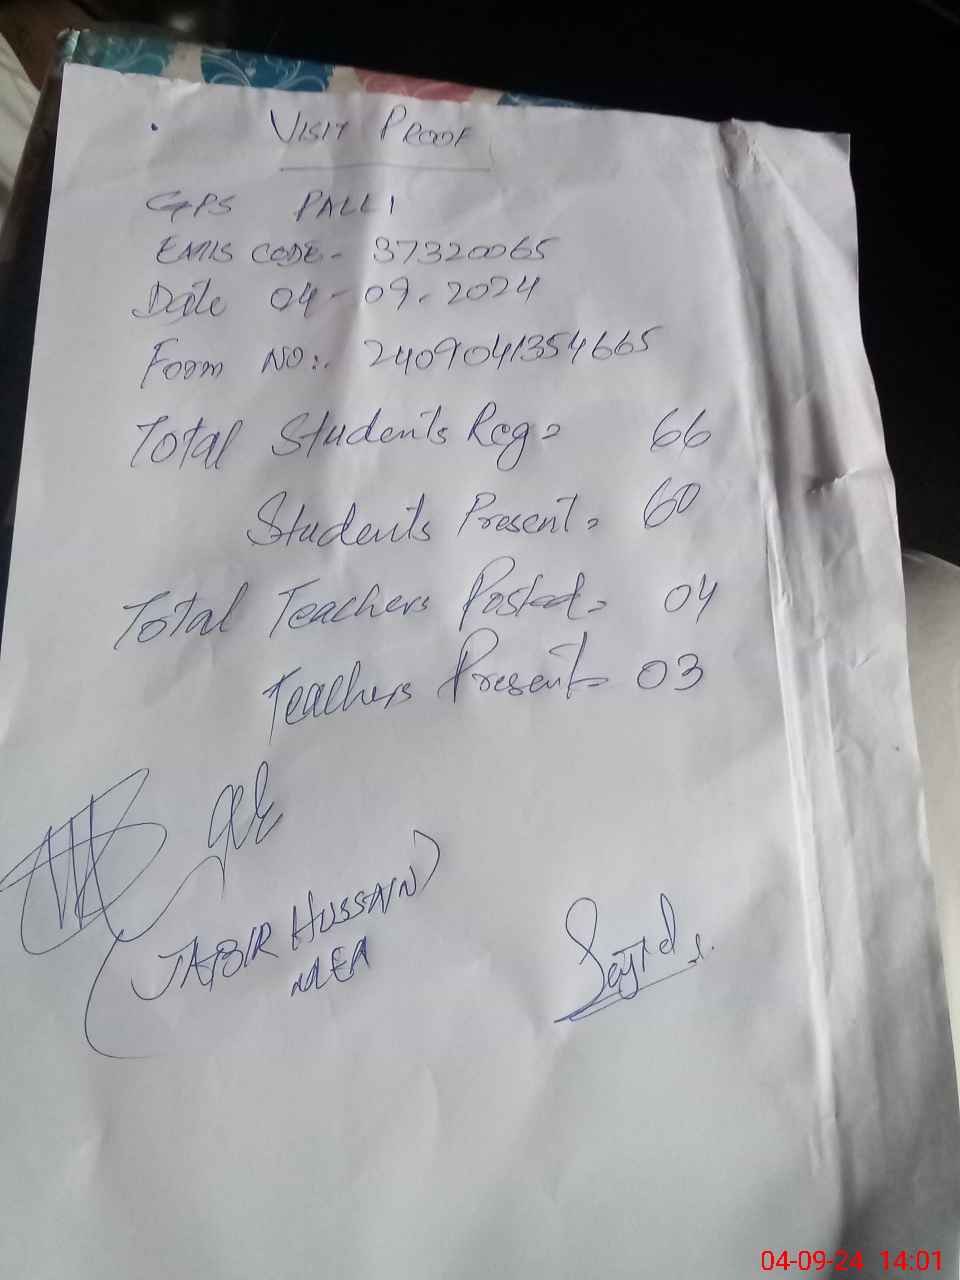 VISIT PROOF
GPS PALLI
EMIS CODE- 37320065
Date 04-09-2024
Form NO:. 2409041354665
Total Students Reg= 66
Students Present= 60
Total Teachers Posted= 04
Teachers Present= 03
JABIR HUSSAIN
MEA
Sajid
04-09-24 14:01